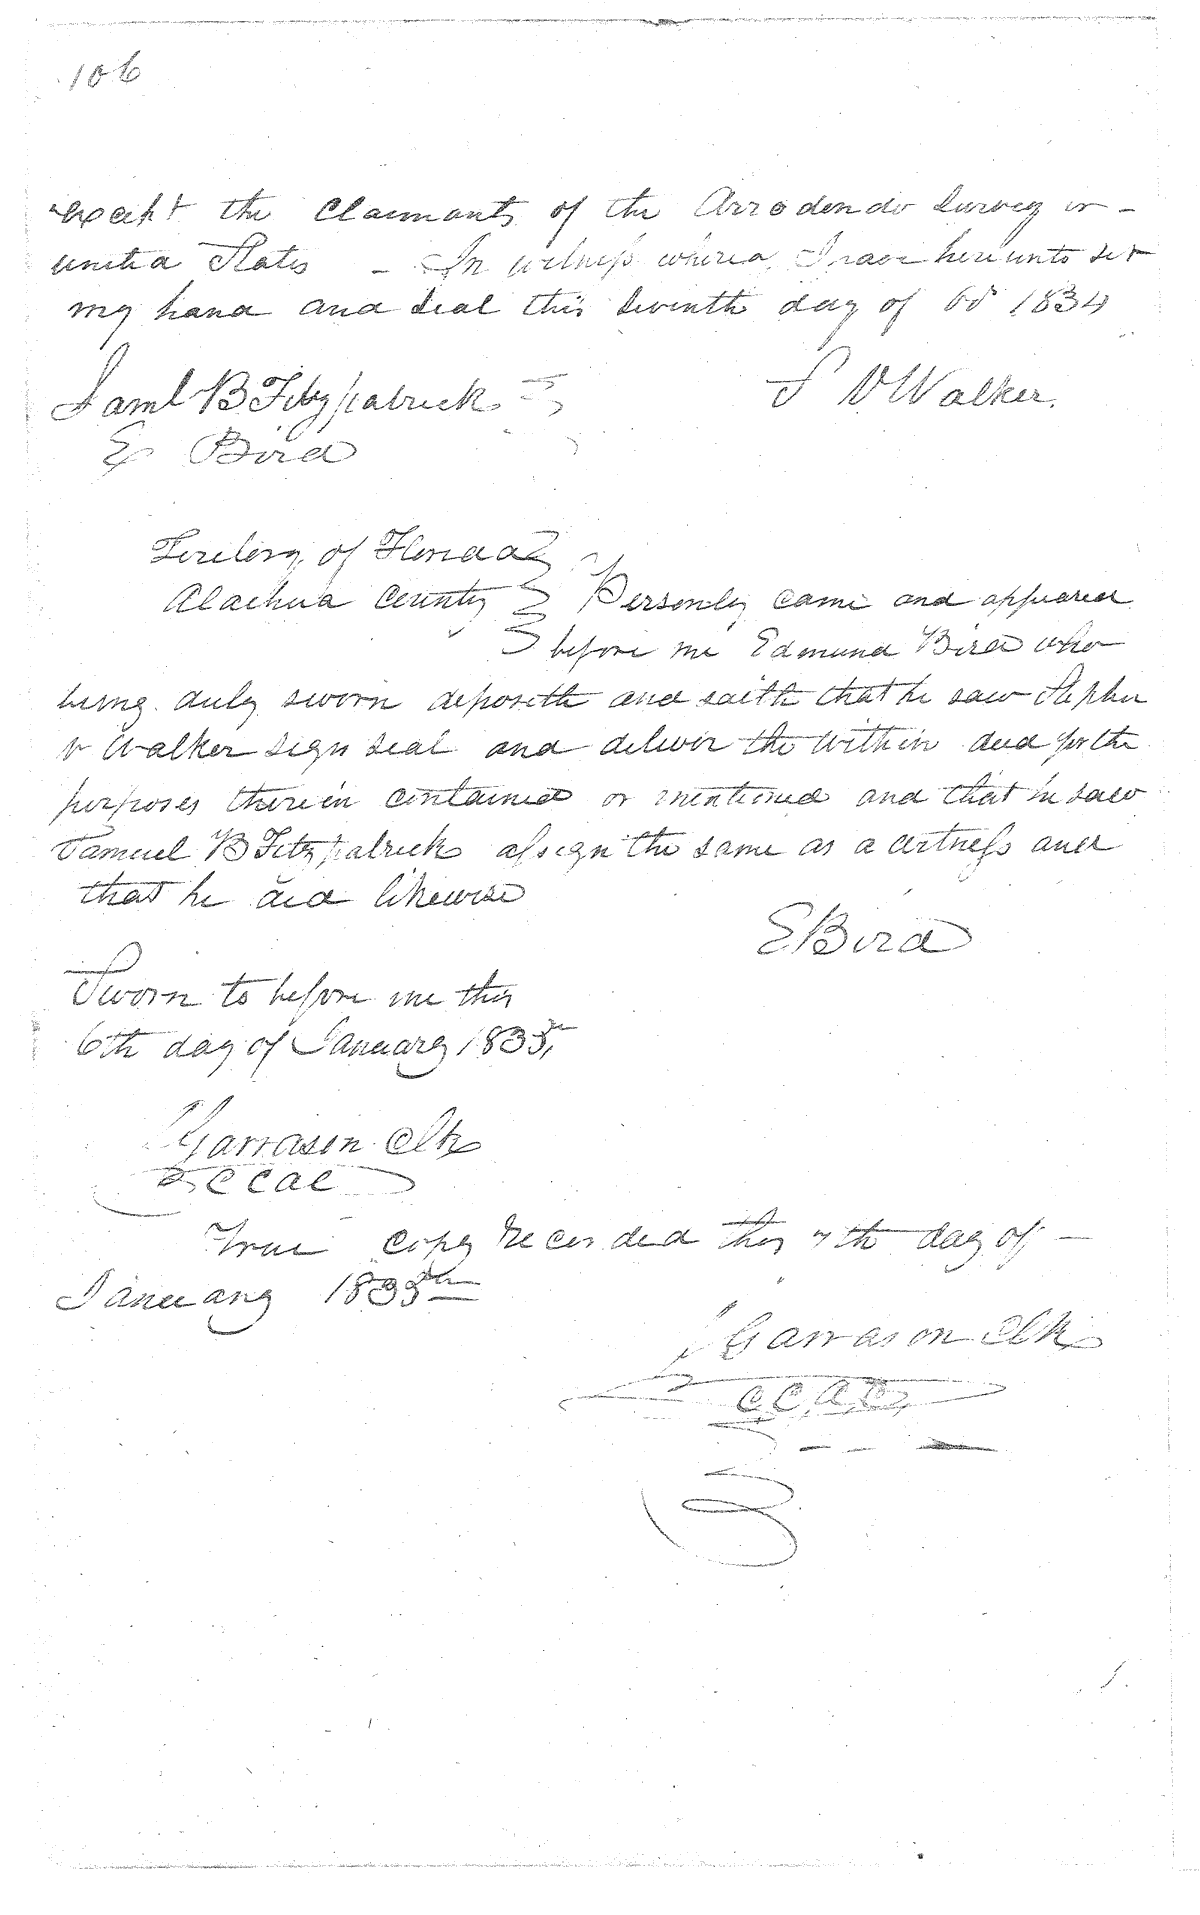 106
except the Claimants of the Arrodendo Survey or -
united States - In witness whereof I have hereunto set
my hand and seal this seventh day of 1834
Saml B Fitzpatrick S V Walker.
E Bird
Teritory of Florida
Alachua County Personly came and appeared
before me Edmund Bird who
being duly sworn deposeth and saith that he saw Stephen
V Walker sign seal and deliver the within deed for the
purposes therein contained or mentioned and that he saw
Samuel B Fitzpatrick assign the same as a witness and
that he did likewise
E Bird
Sworn to before me this
6th day of January 1835,
Garrason Clk
CCAC
True copy Recorded this 7th day of -
January 1835th
Garrason Clk
C.C.A.C.